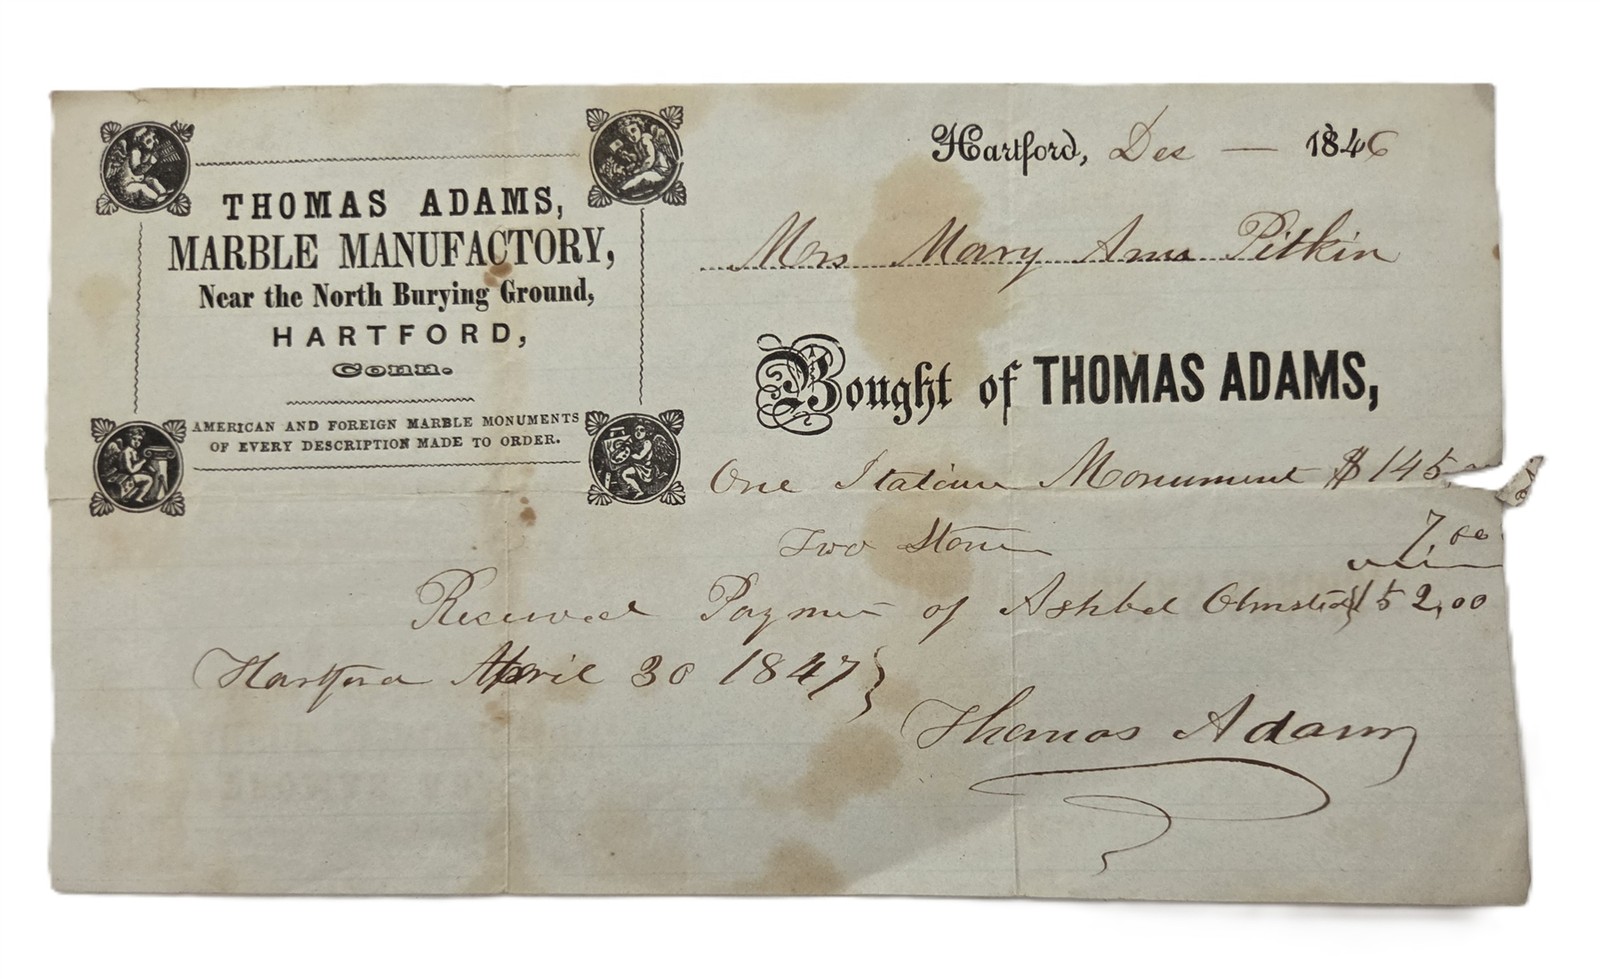 THOMAS ADAMS,
MARBLE MANUFACTORY,
Near the North Burying Ground,
HARTFORD,
Conn.
AMERICAN AND FOREIGN MARBLE MONUMENTS
OF EVERY DESCRIPTION MADE TO ORDER.
Hartford, Dec — 1846
Mrs Mary Ann Pitkin
Bought of THOMAS ADAMS,
One Italian Monument $145
Two Stone 7,00
Received Payment of Ashbel Olmsted 152,00
Hartford April 30 1847 }
Thomas Adams